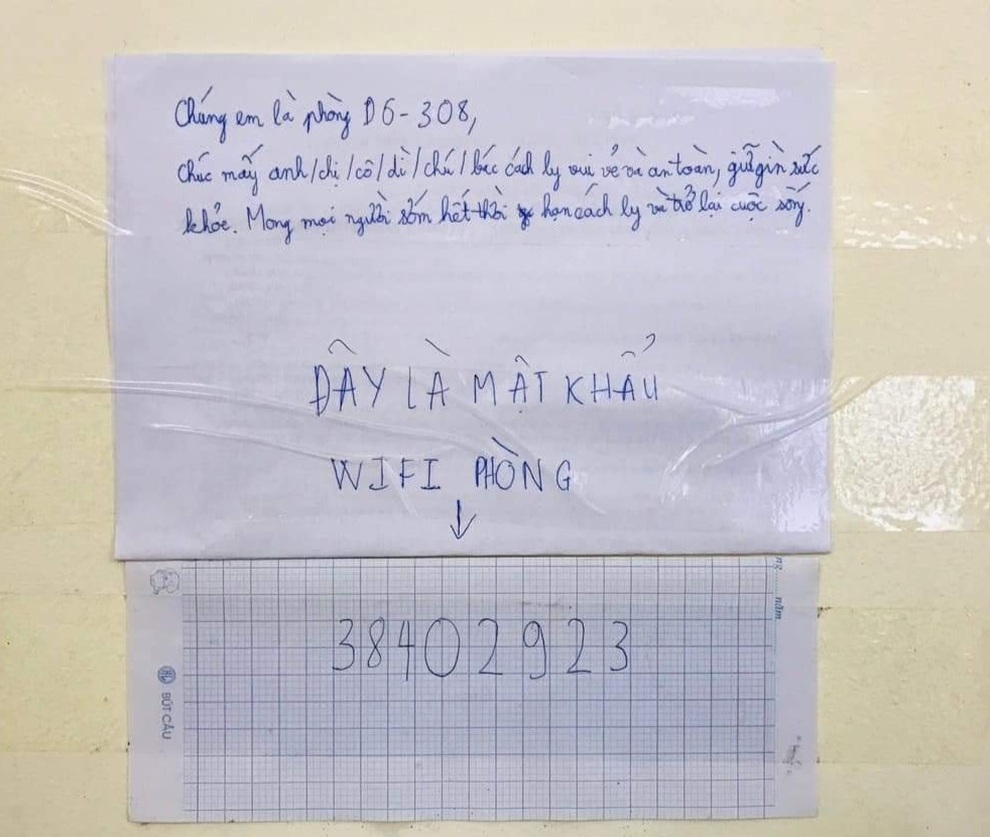 Chúng em là phòng D6-308,
Chúc mấy anh/chị/cô/dì/chú/bác cách ly vui vẻ và an toàn, giữ gìn sức
khỏe. Mong mọi người sớm hết thời hạn cách ly và trở lại cuộc sống.
ĐÂY LÀ MẬT KHẨU
WIFI PHÒNG
↓
38402923
BÚT CẦU
năm